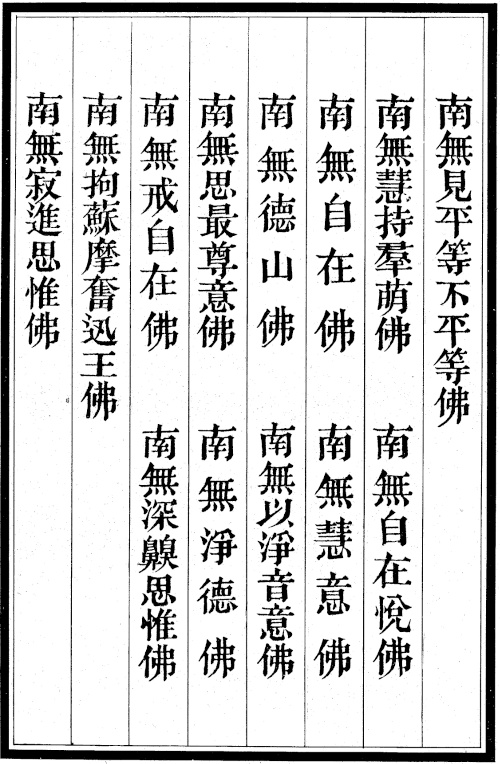 南無見平等不平等佛
南無慧持羣萌佛 南無自在悅佛
南無自在佛 南無慧意佛
南無德山佛 南無以淨音意佛
南無思最尊意佛 南無淨德佛
南無戒自在佛 南無深鼳思惟佛
南無拘蘇摩奮迅王佛
南無寂進思惟佛